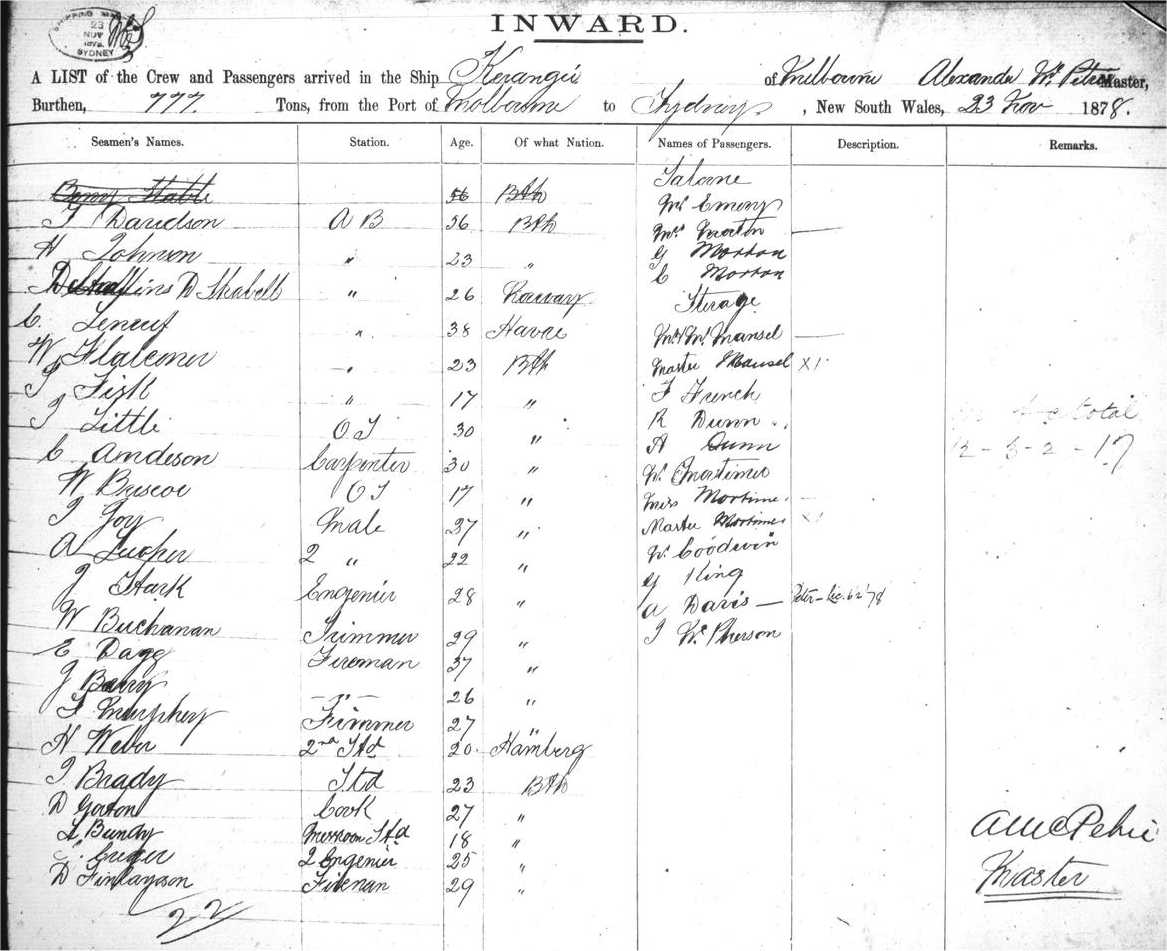 SHIPPING MASTER 23 NOV 1878 SYDNEY
INWARD.
A LIST of the Crew and Passengers arrived in the Ship Kerangie of Melbourne Alexander Mc Petrie Master,
Burthen, 777. Tons, from the Port of Melbourne to Sydney, New South Wales, 23 Nov 1878.
Seamen's Names. Station. Age. Of what Nation. Names of Passengers. Description. Remarks.
56 Bth Saloone
Mr Emery
J Davidson A B 56 Bth Mrs Morton —
H Johnson " 23 " G Morton
E Morton
D Skabell " 26 Norway Sterage
C. Leneuf " 38 Havre Mr & Mrs Mansel —
W Flalconer " 23 Bth Master Mansel X 1
J Fisk " 17 " F French
J Little O S 30 " R Dunn total
C Amdeson Carpenter 30 " A Dunn 12 - 3 - 2 - 17
W Briscoe O S 17 " W. Mortimer
Miss Mortimer —
J Goy Mate 37 " Master Mortimer X 1
A Lucher 2 " 22 " W. Goodwin
J Stark Engenier 28 " G King
A Davis — Peter - Lic. 62/78
W Buchanan Trimmer 29 " J Mc Pherson
E Dagg Fireman 37 "
J Barry — " — 26 "
F Murphey Trimmer 27 "
H Weber 2nd Std 20 Hamberg
J Brady Std 23 Bth
D Gorton Cook 27 "
A Bundy Messroom Std 18 "
Cruger 2 Engenier 25 "
D Finlayson Fireman 29 "
22
A Mc Petrie
Master